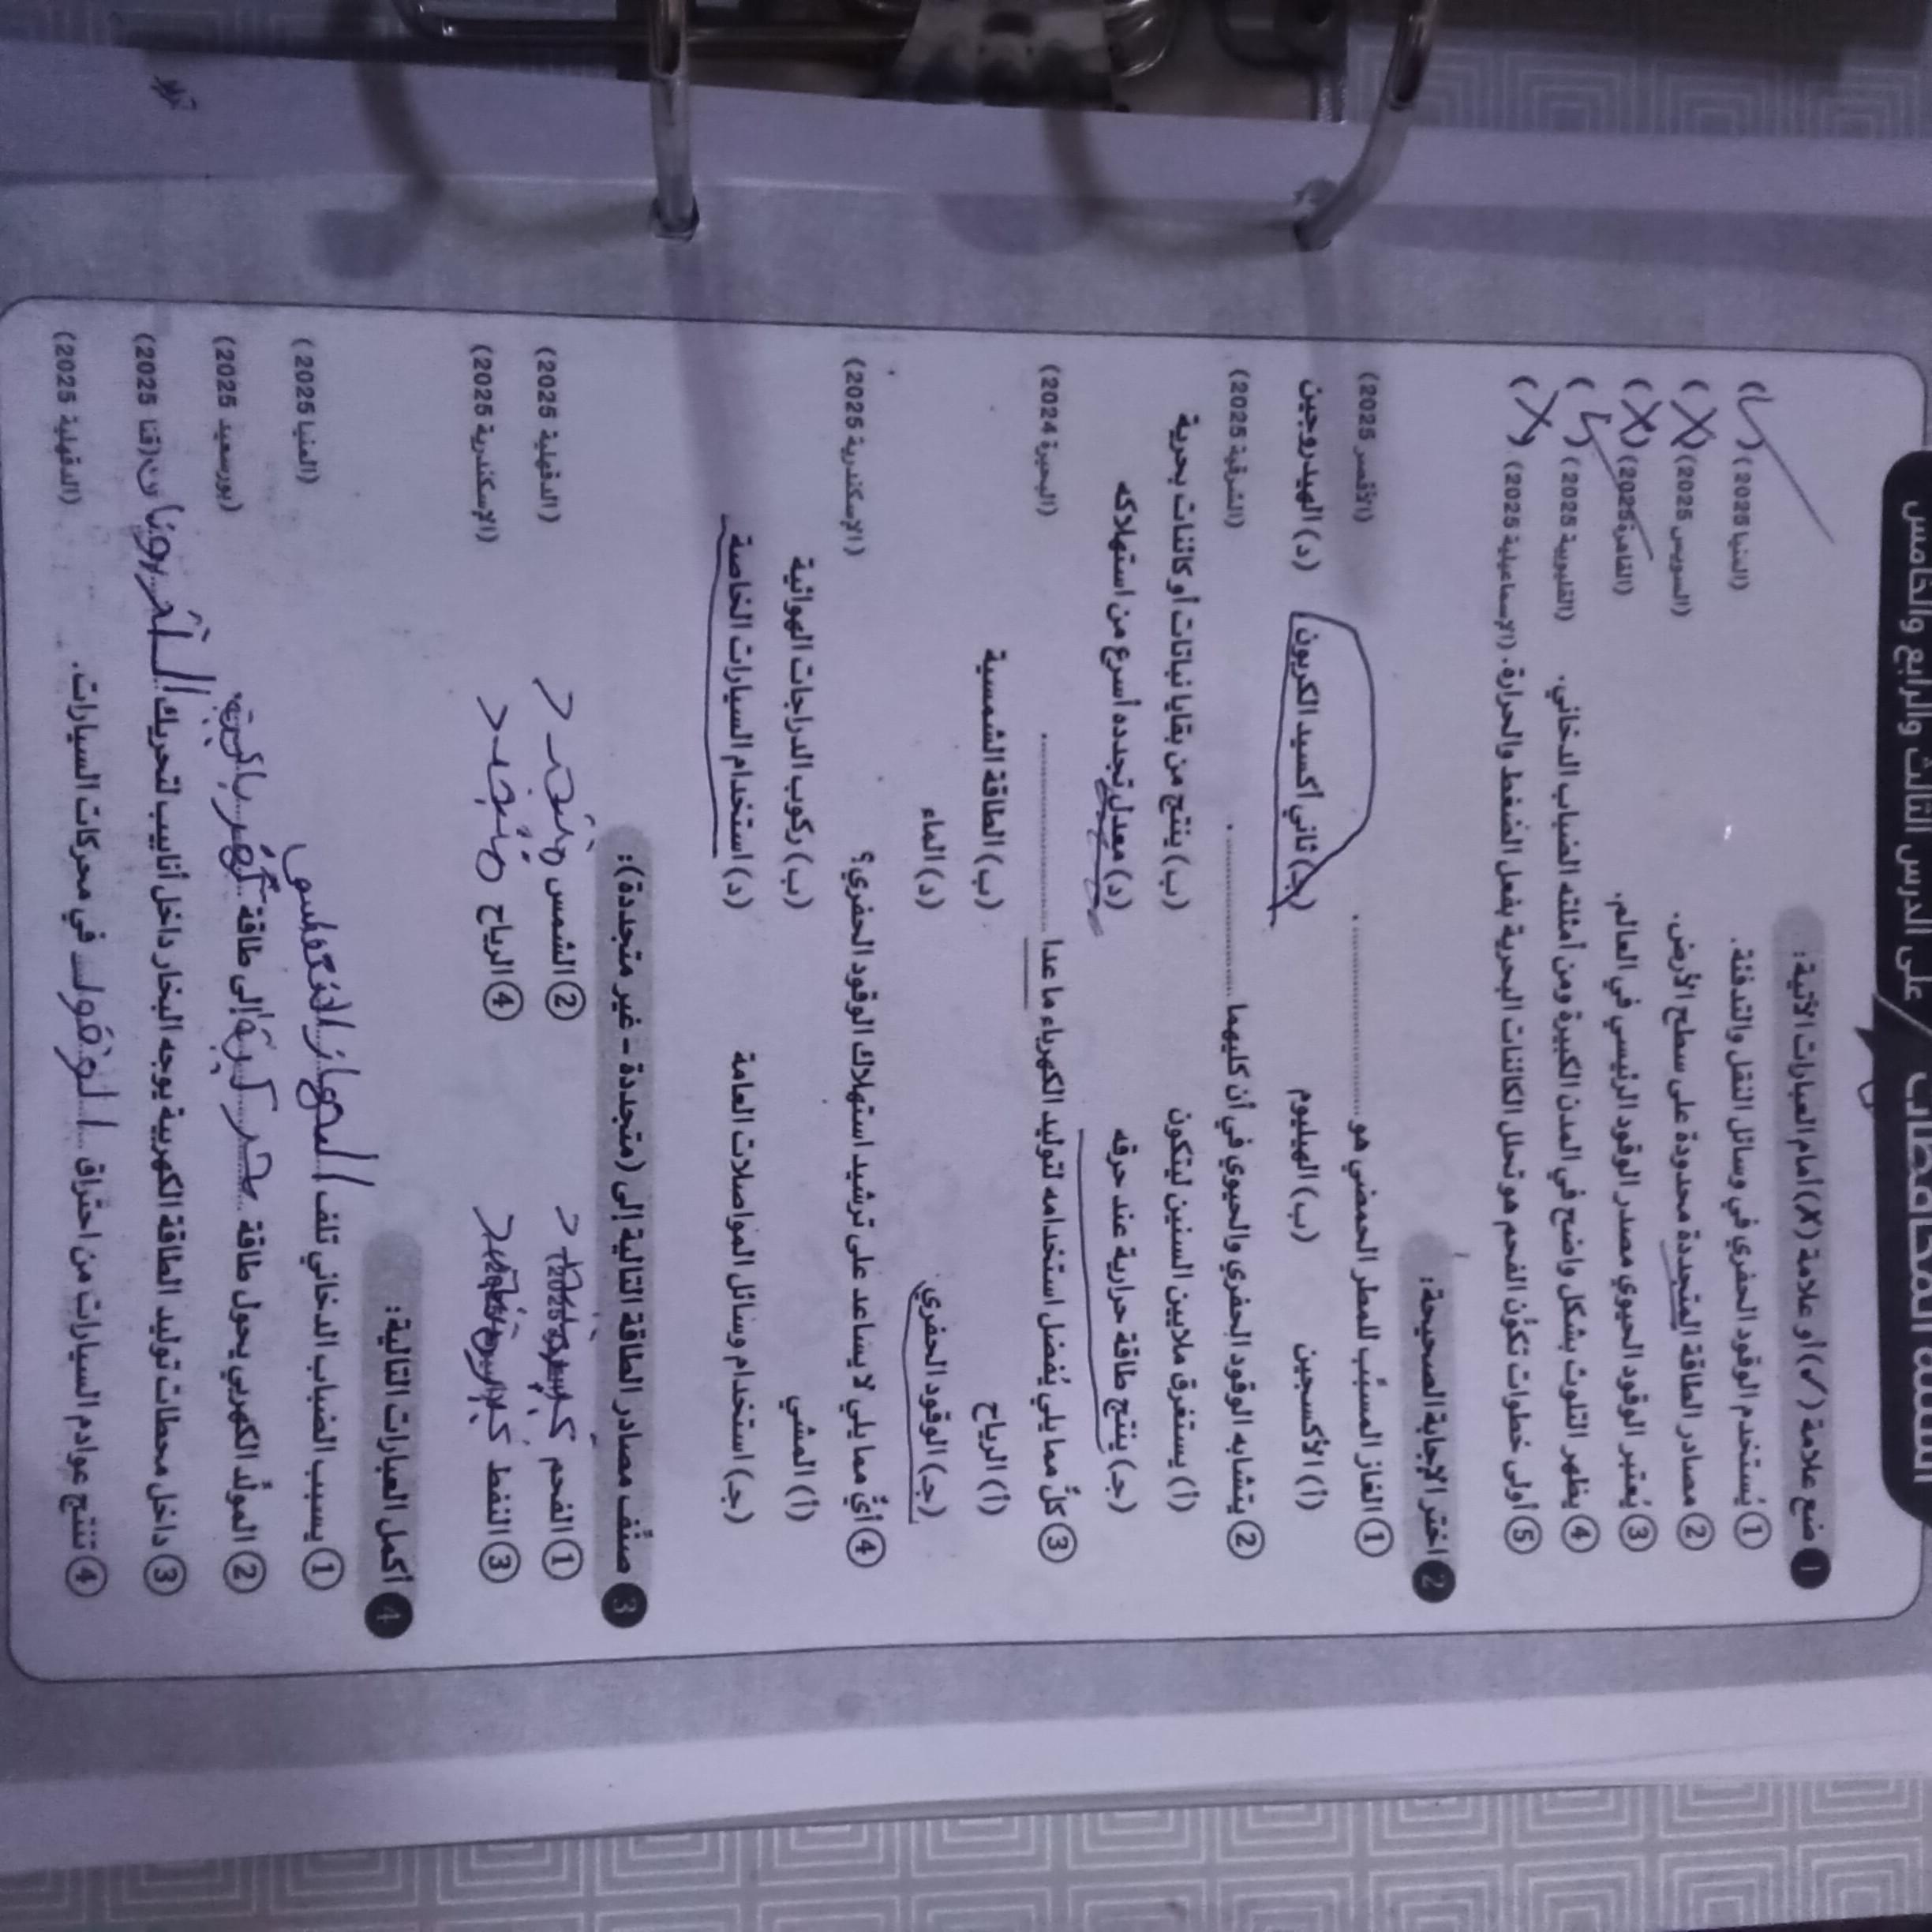 على الدرس الثالث والرابع والخامس
1 ضع علامة (✓) أو علامة (X) أمام العبارات الآتية:
① يُستخدم الوقود الحفري في وسائل النقل والتدفئة. (المنيا 2025) (✓)
② مصادر الطاقة المتجددة محدودة على سطح الأرض. (السويس 2025) (X)
③ يُعتبر الوقود الحيوي مصدر الوقود الرئيسي في العالم. (القاهرة 2025) (X)
④ يظهر التلوث بشكل واضح في المدن الكبيرة ومن أمثلته الضباب الدخاني. (القليوبية 2025) (✓)
⑤ أولى خطوات تكوُّن الفحم هو تحلل الكائنات البحرية بفعل الضغط والحرارة. (الإسماعيلية 2025) (X)
2 اختر الإجابة الصحيحة:
① الغاز المسبِّب للمطر الحمضي هو .................... . (الأقصر 2025)
(أ) الأكسجين (ب) الهيليوم (جـ) ثاني أكسيد الكربون (د) الهيدروجين
② يتشابه الوقود الحفري والحيوي في أن كليهما .................... . (الشرقية 2025)
(أ) يستغرق ملايين السنين ليتكون (ب) ينتج من بقايا نباتات أو كائنات بحرية
(جـ) ينتج طاقة حرارية عند حرقه (د) معدل تجدده أسرع من استهلاكه
③ كلٌّ مما يلي يُفضل استخدامه لتوليد الكهرباء ما عدا .................... . (البحيرة 2024)
(أ) الرياح (ب) الطاقة الشمسية
(جـ) الوقود الحفري (د) الماء
④ أيٌّ مما يلي لا يساعد على ترشيد استهلاك الوقود الحفري؟ (الإسكندرية 2025)
(أ) المشي (ب) ركوب الدراجات الهوائية
(جـ) استخدام وسائل المواصلات العامة (د) استخدام السيارات الخاصة
3 صنِّف مصادر الطاقة التالية إلى (متجددة - غير متجددة):
① الفحم ② الشمس (الدقهلية 2025)
③ النفط ④ الرياح (الإسكندرية 2025)
4 أكمل العبارات التالية:
① يسبب الضباب الدخاني تلف الجهاز التنفسي (المنيا 2025)
② المولِّد الكهربي يحول طاقة حركية إلى طاقة كهربائية (بورسعيد 2025)
③ داخل محطات توليد الطاقة الكهربية يوجه البخار داخل أنابيب لتحريك التربونات (قنا 2025)
④ تنتج عوادم السيارات من احتراق الوقود في محركات السيارات. (الدقهلية 2025)